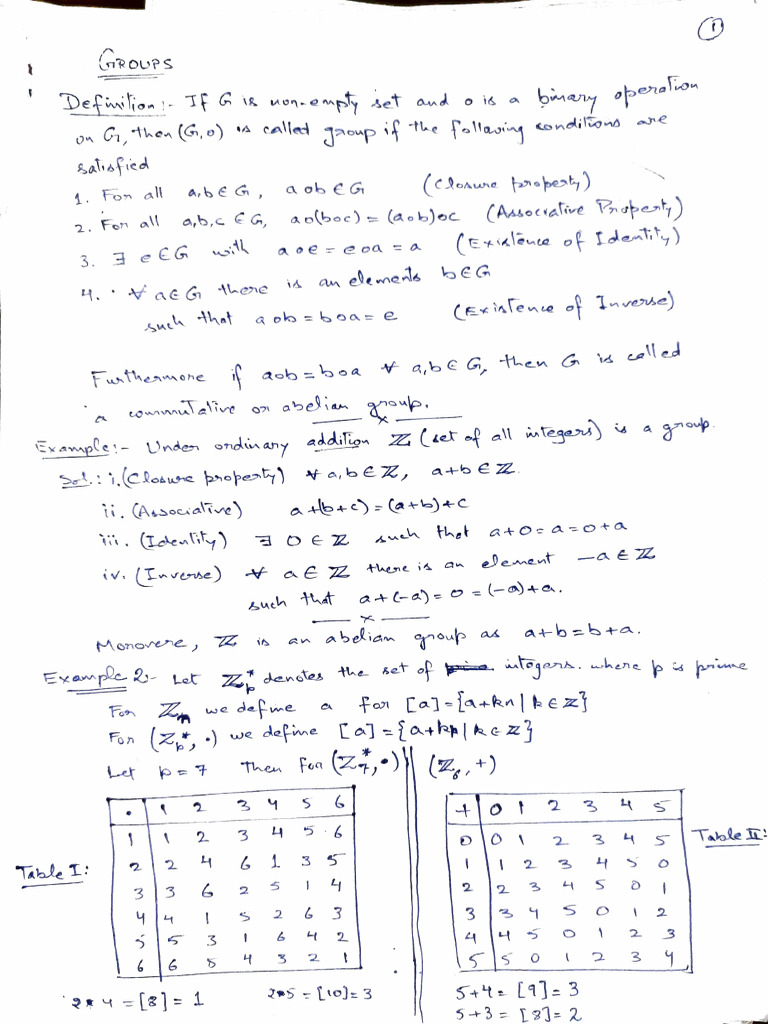 1
GROUPS
Definition :- If G is non-empty set and o is a binary operation
on G, then (G, o) is called group if the following conditions are
satisfied
1. For all a,b ∈ G, a o b ∈ G (Closure property)
2. For all a,b,c ∈ G, a o (b o c) = (a o b) o c (Associative Property)
3. ∃ e ∈ G with a o e = e o a = a (Existence of Identity)
4. ∀ a ∈ G there is an elements b ∈ G
such that a o b = b o a = e (Existence of Inverse)
Furthermore if a o b = b o a ∀ a,b ∈ G, then G is called
a commutative or abelian group.
x
Example :- Under ordinary addition ℤ (set of all integers) is a group.
Sol.: i. (Closure property) ∀ a,b ∈ ℤ, a+b ∈ ℤ.
ii. (Associative) a+(b+c) = (a+b)+c
iii. (Identity) ∃ 0 ∈ ℤ such that a+0=a=0+a
iv. (Inverse) ∀ a ∈ ℤ there is an element -a ∈ ℤ
such that a+(-a) = 0 = (-a)+a.
x
Morovere, ℤ is an abelian group as a+b=b+a.
Example 2:- Let ℤ*p denotes the set of intogars. where p is prime
For ℤn we define a for [a]={a+kn | k ∈ ℤ}
For (ℤp*, •) we define [a]={a+kp | k ∈ ℤ}
Let p=7 Then for (ℤ7*, •) (ℤ6, +)
• 1 2 3 4 5 6
1 1 2 3 4 5 6
2 2 4 6 1 3 5
3 3 6 2 5 1 4
4 4 1 5 2 6 3
5 5 3 1 6 4 2
6 6 5 4 3 2 1
Table I:
2 • 4 = [8] = 1 2•5 = [10] = 3
+ 0 1 2 3 4 5
0 0 1 2 3 4 5
1 1 2 3 4 5 0
2 2 3 4 5 0 1
3 3 4 5 0 1 2
4 4 5 0 1 2 3
5 5 0 1 2 3 4
Table II:
5+4 = [9] = 3
5+3 = [8] = 2